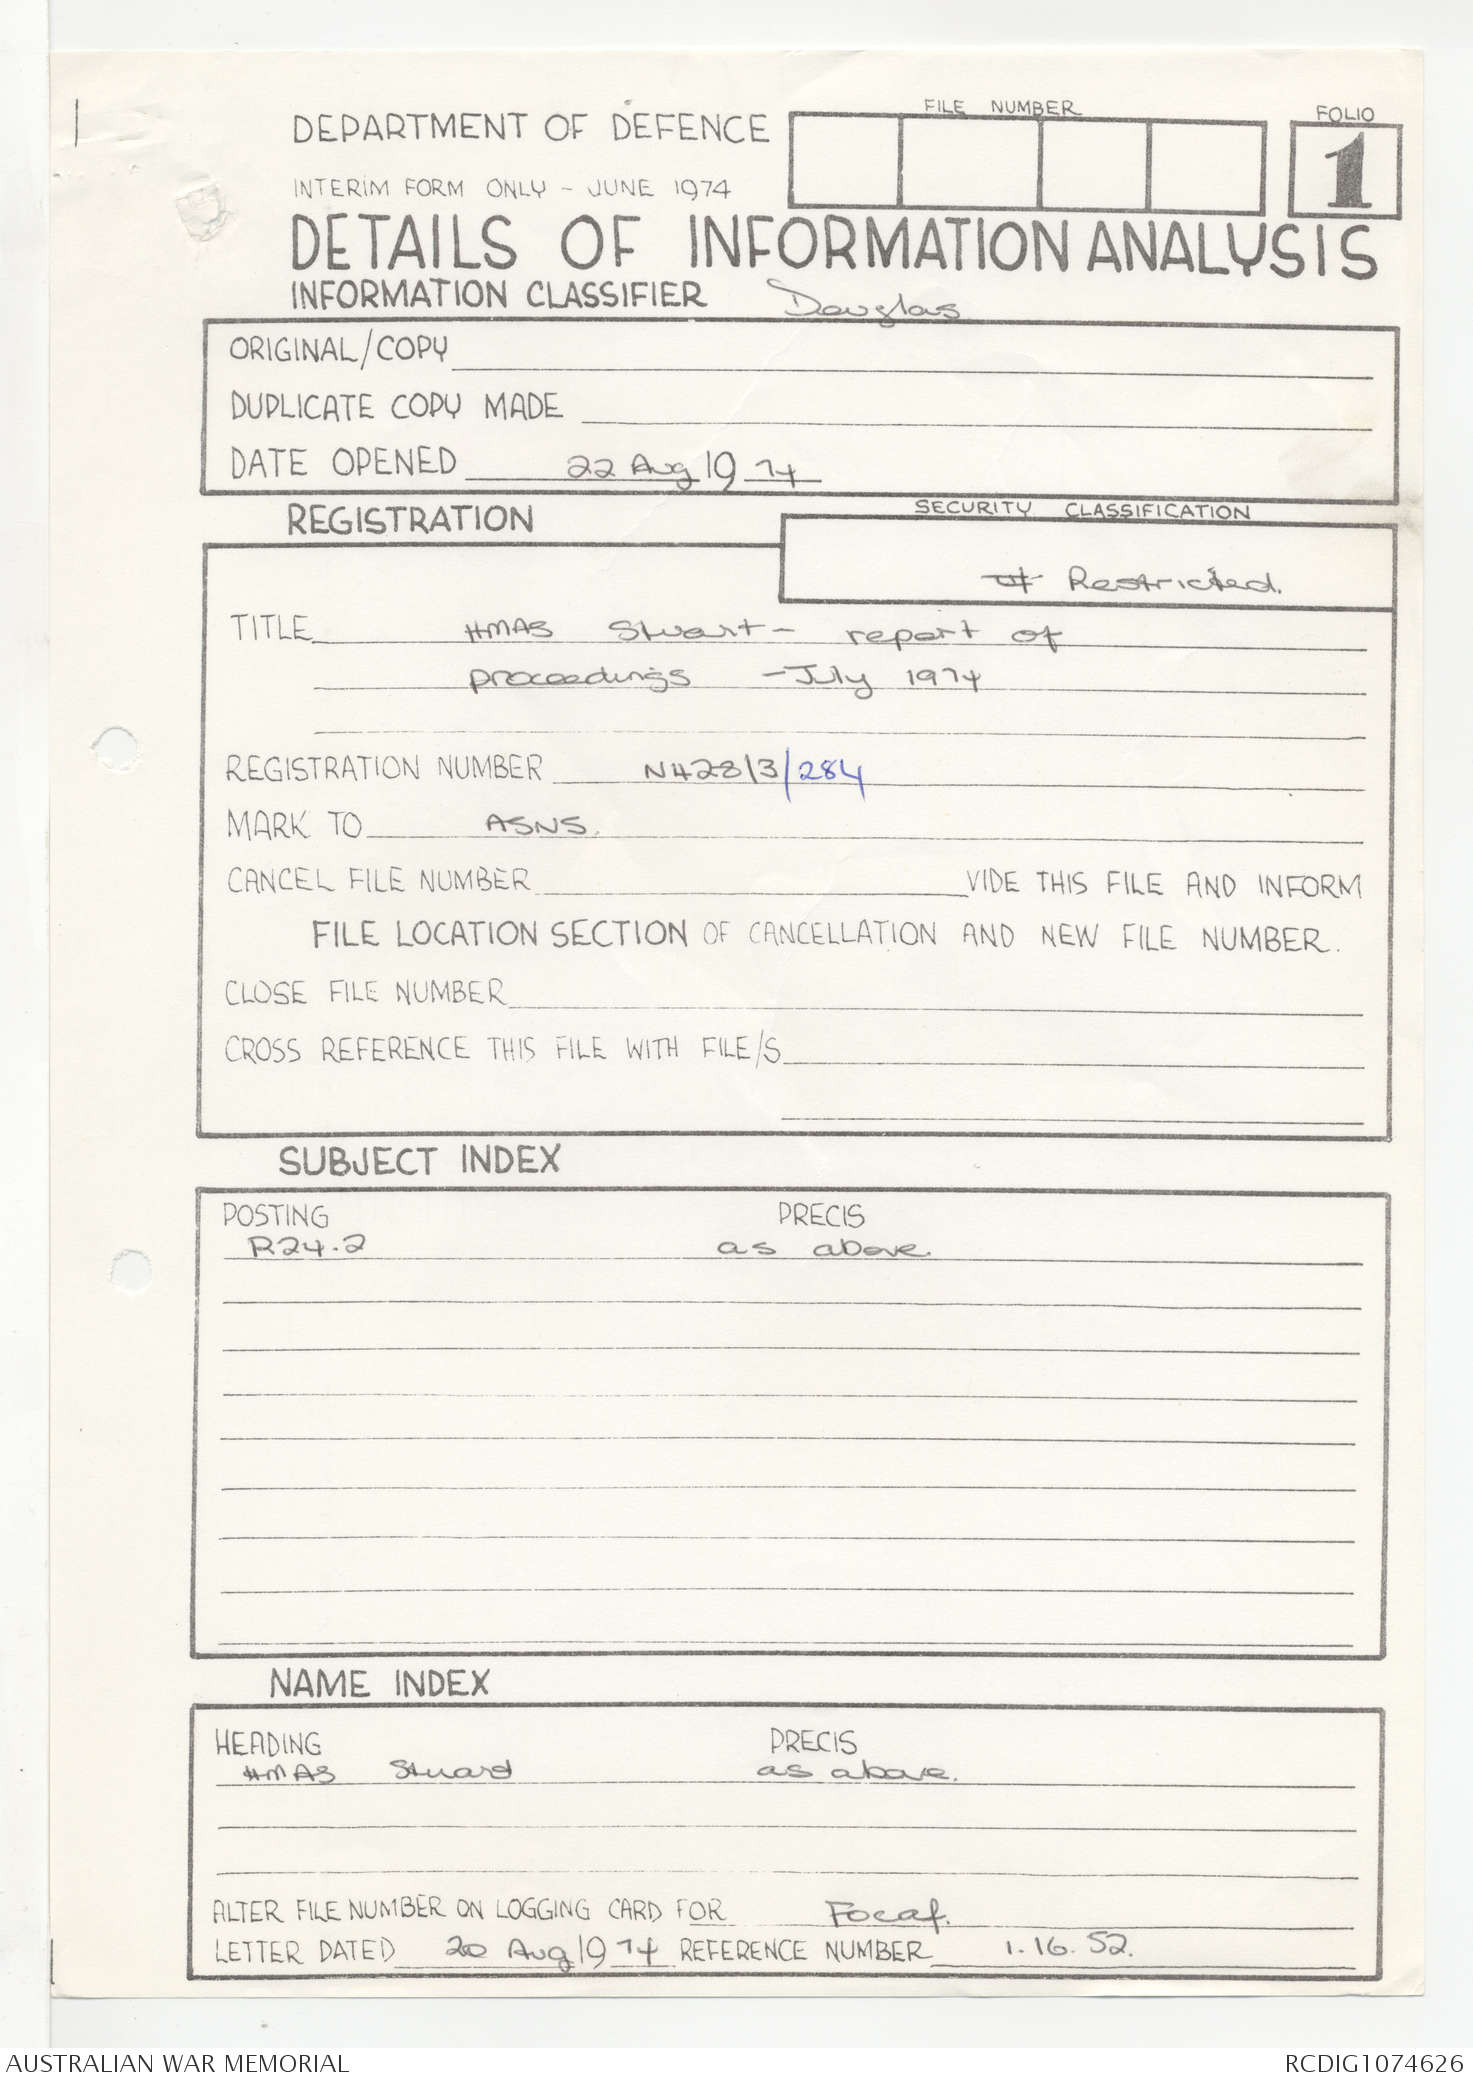 DEPARTMENT OF DEFENCE
FILE NUMBER
FOLIO
1
INTERIM FORM ONLY - JUNE 1974
DETAILS OF INFORMATION ANALYSIS
INFORMATION CLASSIFIER Douglas
ORIGINAL/COPY
DUPLICATE COPY MADE
DATE OPENED 22 Aug 1974
REGISTRATION
SECURITY CLASSIFICATION
Restricted.
TITLE HMAS Stuart - report of
proceedings - July 1974
REGISTRATION NUMBER N428/3/284
MARK TO ASNS.
CANCEL FILE NUMBER VIDE THIS FILE AND INFORM
FILE LOCATION SECTION OF CANCELLATION AND NEW FILE NUMBER.
CLOSE FILE NUMBER
CROSS REFERENCE THIS FILE WITH FILE/S
SUBJECT INDEX
POSTING PRECIS
R24.2 as above.
NAME INDEX
HEADING PRECIS
HMAS Stuard as above.
ALTER FILE NUMBER ON LOGGING CARD FOR Focaf.
LETTER DATED 20 Aug 1974 REFERENCE NUMBER 1.16.52.
AUSTRALIAN WAR MEMORIAL
RCDIG1074626